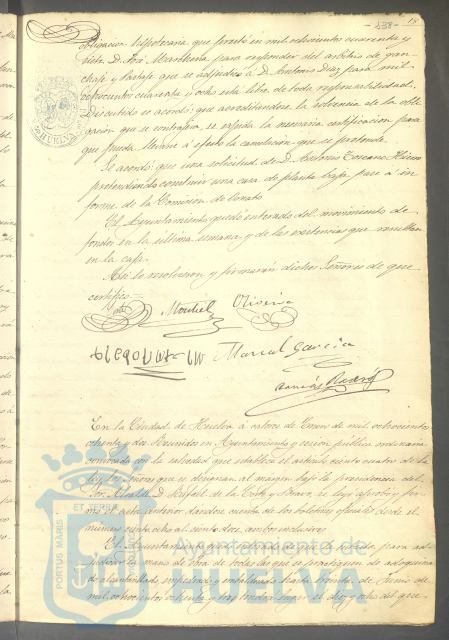 138
18
obligacion hipotecaria que prestó en mil ochocientos cuarenta y
siete D. José Marchena para responder del arbitrio de
que se adjudicó á D. Antonio Diaz para mil
ochocientos cuarenta y ocho está libre de toda responsabilidad.
Discutido se acordó: que acreditandose la solvencia de la obli
gacion que se contrajo, se expida la necesaria certificacion para
que pueda llevarse á efecto la cancelacion que se pretende.
Se acordó que una solicitud de D. Antonio Toscano
pretendiendo construir una casa de planta baja, pase á in
forme de la Comision de Ornato.
El Ayuntamiento quedó enterado del movimiento de
fondos en la última semana y de las existencias que resultan
en la caja.
Así lo resolvieron y firmarán dichos Señores de que
certifico.
Montiel
Manuel Garcia
En la Ciudad de Huelva á catorce de Enero de mil ochocientos
ochenta y dos Reunidos en Ayuntamiento y sesión pública ordinaria
convocada con la salvedad que establece el artículo ciento cuatro de la
ley, los Señores que se designan al margen bajo la presidencia del
Sor. Alcalde D. Rafael de la Corte y Bravo, se leyó aprobó y fir
mó el acta anterior dandose cuenta de los boletines oficiales desde el
número ciento ocho al ciento doce, ambos inclusives.
El Ayuntamiento para
judicar la mano de obra de todas las que se practiquen de adoquina
do alcantarillado, empedrado y embaldosado hasta treinta de Junio de
mil ochocientos ochenta y tres
PORTUS MARIS
ET TERRÆ
CUSTODIA
Ayuntamiento de
HUELVA